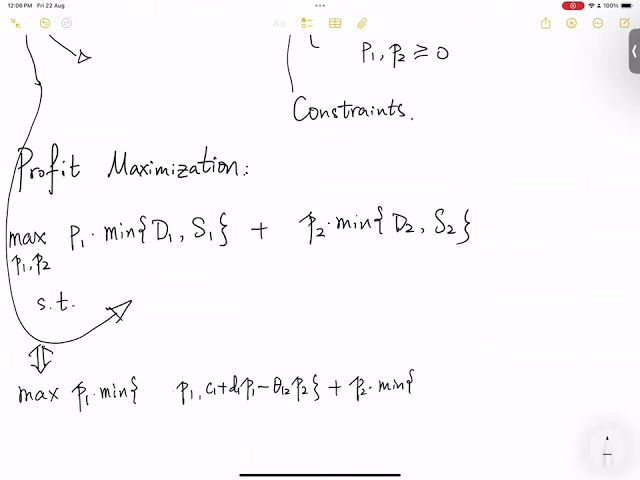 12:06 PM Fri 22 Aug
100%
Aa
p₁, p₂ ≥ 0
Constraints.
Profit Maximization:
max p₁·min{D₁, S₁} + p₂·min{D₂, S₂}
p₁, p₂
s.t.
⇕
max p₁·min{ p₁, c₁+d₁p₁−θ₁₂p₂} + p₂·min{